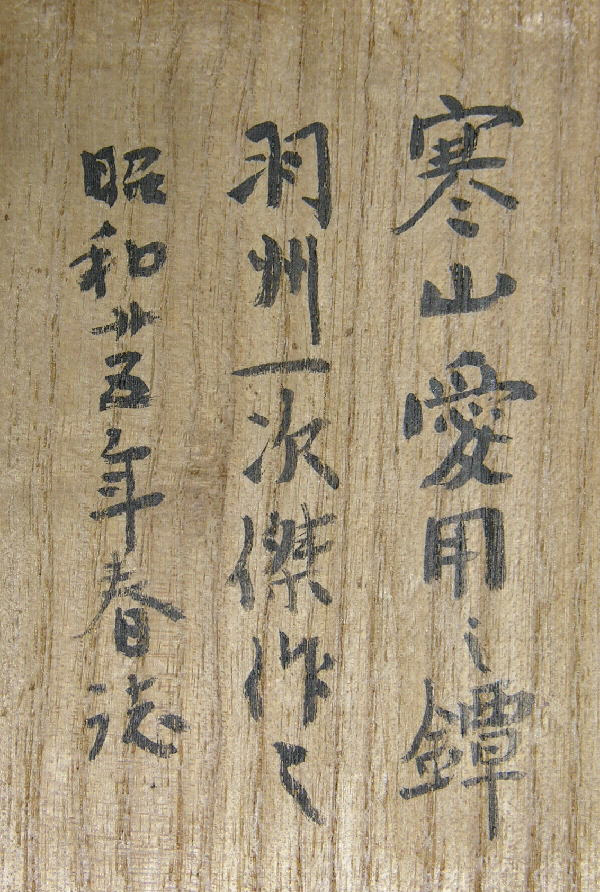 寒山愛用之鐔
羽州一次傑作之
昭和廿五年春誌